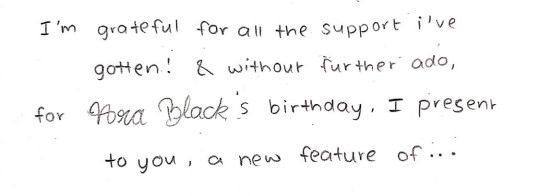 I'm grateful for all the support i've
gotten! & without further ado,
for Nora Black's birthday, I present
to you, a new feature of...